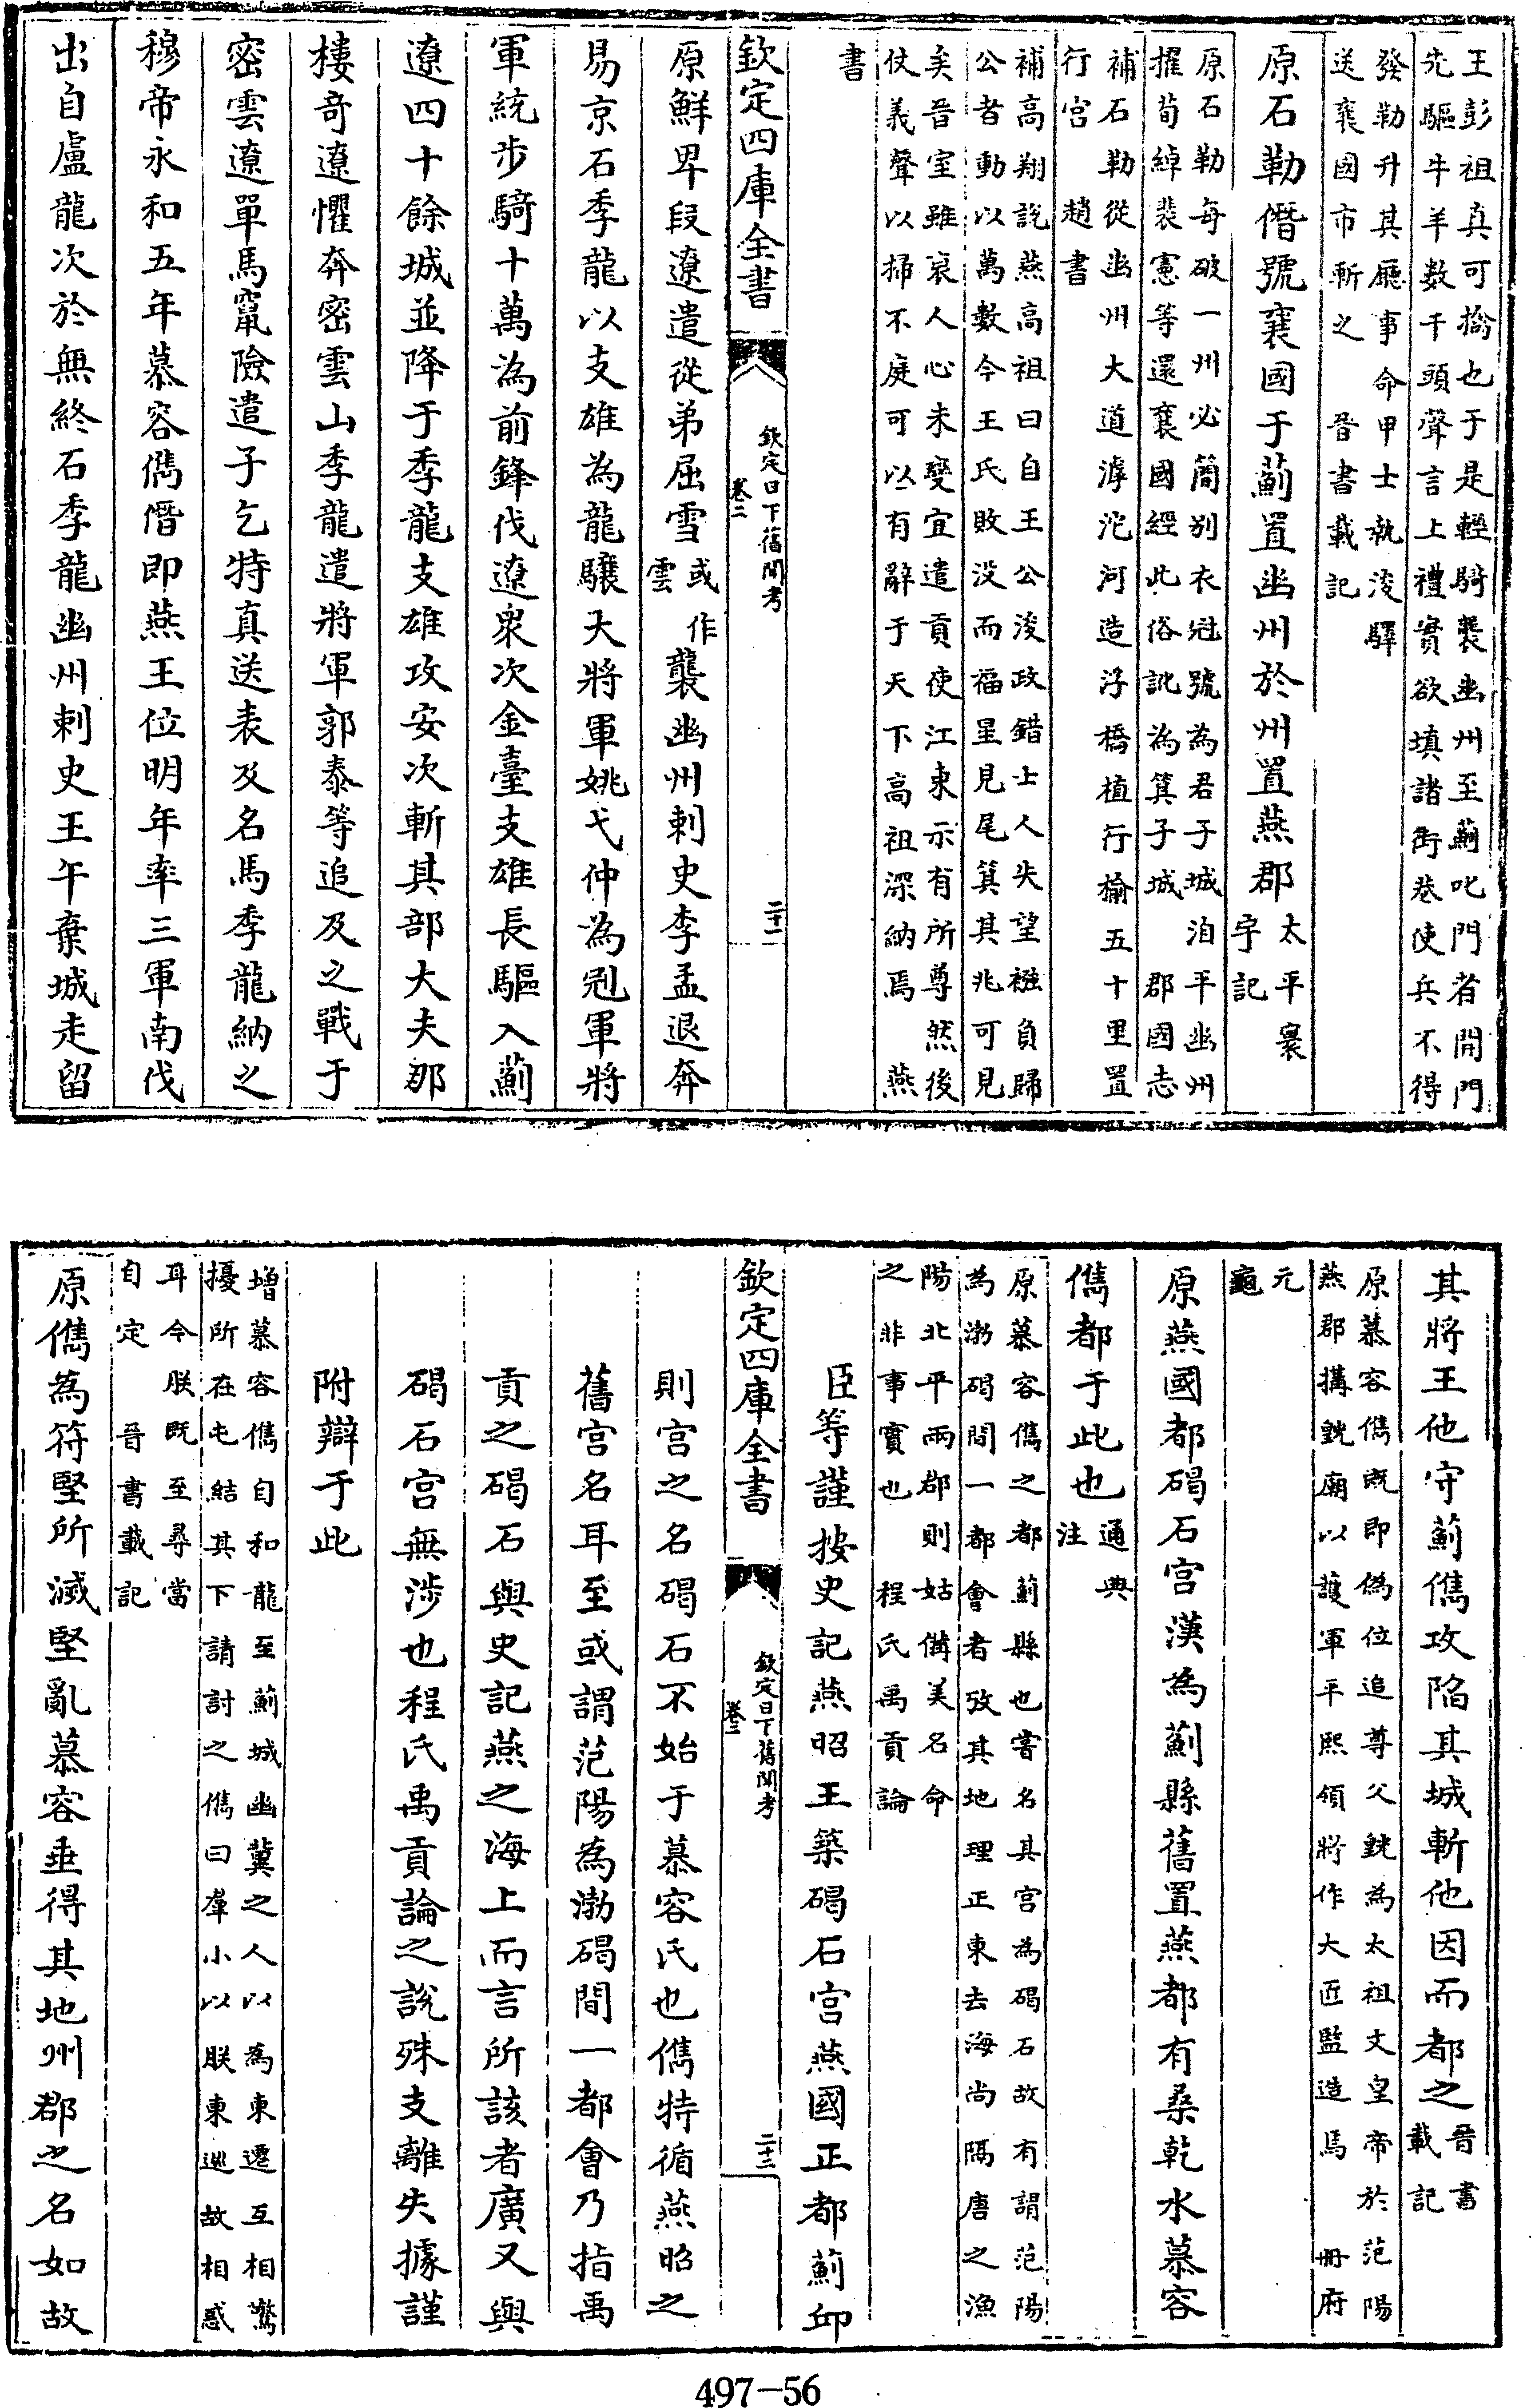 王彭祖真可擒也于是輕騎襲幽州至薊叱門者開門
先驅牛羊数千頭聲言上禮實欲填諸街巷使兵不得
發勒升其廳事命甲士執浚驛
送襄國市斬之　晉書載記
原石勒僭號襄國于薊置幽州於州置燕郡
太平寰
宇記
原石勒每破一州必簡别衣冠號為君子城洎平幽州
擢荀綽裴憲等還襄國經此俗訛為箕子城　郡國志
補石勒從幽州大道滹沱河造浮橋植行榆五十里置
行宫　趙書
補高翔說燕高祖曰自王公浚政錯士人失望襁負歸
公者動以萬數今王氏敗没而福星見尾箕其兆可見
矣晉室雖衰人心未變宜遣貢使江東示有所尊然後
仗義聲以掃不庭可以有辭于天下高祖深納焉　燕
書
欽定四庫全書
欽定日下舊聞考
卷二
二十一
原鮮卑段遼遣從弟屈雪
或作
雲
襲幽州刺史李孟退奔
易京石季龍以支雄為龍驤大將軍姚弋仲為冠軍將
軍統步騎十萬為前鋒伐遼衆次金臺支雄長驅入薊
遼四十餘城並降于季龍支雄攻安次斬其部大夫那
樓奇遼懼奔密雲山季龍遣將軍郭泰等追及之戰于
密雲遼單馬竄險遣子乞特真送表及名馬季龍納之
穆帝永和五年慕容儁僭即燕王位明年率三軍南伐
出自盧龍次於無終石季龍幽州刺史王午棄城走留
其將王他守薊儁攻陷其城斬他因而都之
晉書
載記
原慕容儁既即僞位追尊父皝為太祖文皇帝於范陽
燕郡搆皝廟以護軍平熙領將作大匠監造焉　冊府
元
龜
原燕國都碣石宫漢為薊縣舊置燕都有桑乾水慕容
儁都于此也
通典
注
原慕容儁之都薊縣也嘗名其宫為碣石故有謂范陽
為渤碣間一都會者攷其地理正東去海尚隔唐之漁
陽北平兩郡則姑借美名命
之非事實也　程氏禹貢論
臣等謹按史記燕昭王築碣石宫燕國正都薊邱
欽定四庫全書
欽定日下舊聞考
卷二
二十二
則宫之名碣石不始于慕容氏也儁特循燕昭之
舊宫名耳至或謂范陽為渤碣間一都會乃指禹
貢之碣石與史記燕之海上而言所該者廣又與
碣石宫無涉也程氏禹貢論之說殊支離失據謹
附辯于此
增慕容儁自和龍至薊城幽冀之人以為東遷互相驚
擾所在屯結其下請討之儁曰羣小以朕東巡故相惑
耳今朕既至尋當
自定　晉書載記
原儁為符堅所滅堅亂慕容垂得其地州郡之名如故
497-56